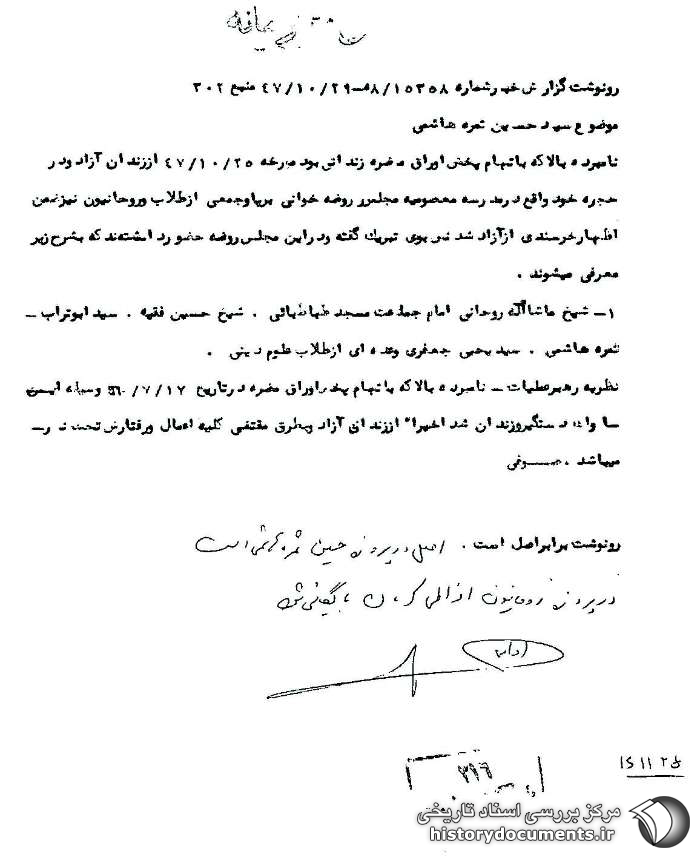 رونوشت گزارش خبر شماره ۱۵۳۵۸/ ۵۸-۴۷/۱۰/۲۹ منبع ۳۰۲
موضوع سید حسین ثمره هاشمی
نامبرده بالا که با تهام پخش اوراق مضره زندانی بود مورخه ۴۷/۱۰/۲۵ از زندان آزاد و در
حجره خود واقع در مدرسه معصومیه مجلس روضه خوانی برپا و جمعی از طلاب و روحانیون نیز ضمن
اظهار خرسندی از آزاد شدنش بوی تبریک گفته و در این مجلس روضه حضور داشته‌اند که بشرح زیر
معرفی میشوند .
۱- شیخ ماشااله روحانی امام جماعت مسجد طباطبائی . شیخ حسین فقیه . سید ابوتراب -
ثمره هاشمی . سید یحیی جعفری وعده ای از طلاب علوم دینی .
نظریه رهبر عملیات - نامبرده بالا که با تهام پخش اوراق مضره در تاریخ ۱۷/ ۷/ وسیله
دستگیر و زندانی شد اخیرا" از زندان آزاد و بطرق مقتضی کلیه اعمال و رفتارش تحت
میباشد .
رونوشت برابر اصل است . اصل در پرونده حسین ثمره هاشمی است
در پرونده روحانیون بایگانی شود
۳۹۶
۱۵ ۱۱ ۲۵
مرکز بررسی اسناد تاریخی
historydocuments.ir